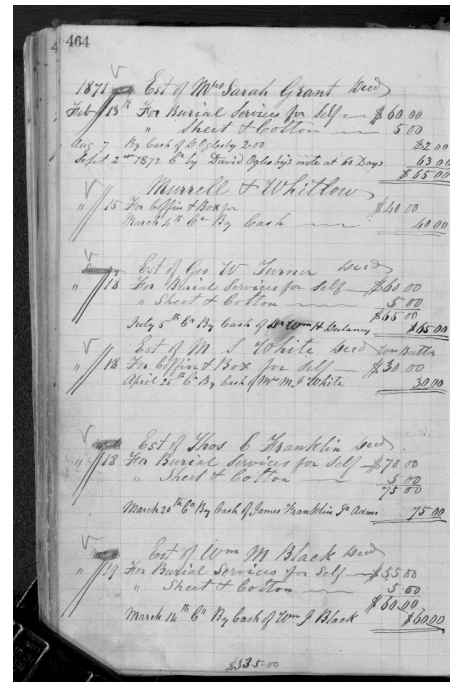 464
1871 Est of Mrs Sarah Grant Decd
Feb 13th For Burial Services for Self — $60.00
" Sheet & Cotton — 5 00
Aug 7 By Cash C Oglesby 2.00 $2 00
Sept 2nd 1872 Cr by David Oglesby's note at 60 Days 63 00
$65 00
Murrell & Whitlow
" 15 For Coffin & Box for $40 00
March 4th Cr By Cash — 40.00
Est of Geo W Turner Decd
" 18 For Burial Services for Self — $60 00
" Sheet & Cotton — 5 00
$65 00
July 5th Cr By Cash of Dr Wm H Dulaney $65 00
Est of M S White Decd
" 18 For Coffin & Box for Self — $30 00
April 25th Cr By Cash of Mrs M J White 30 00
Est of Thos C Franklin Decd
" 18 For Burial Services for Self — $70 00
" Sheet & Cotton — 5 00
75 00
March 20th Cr By Cash of James Franklin 75 00
Est of Wm M Black Decd
" 19 For Burial Services for Self — $55 00
" Sheet & Cotton — 5 00
$60.00
March 14th Cr By Cash of Wm J Black $60.00
$335.00